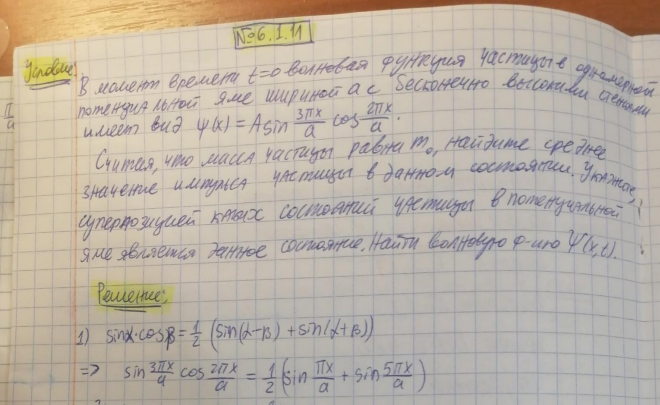 №6.1.11
Условие:
В момент времени t=0 волновая функция частицы в одномерной
потенциальной яме шириной a с бесконечно высокими стенками
имеет вид ψ(x) = A sin 3πx/a cos 2πx/a.
Считая, что масса частицы равна m₀, найдите среднее
значение импульса частицы в данном состоянии. Укажите,
суперпозицией каких состояний частицы в потенциальной
яме является данное состояние. Найти волновую ф-ию Ψ(x,t).
Решение:
1) sinα·cosβ = 1/2 (sin(α-β) + sin(α+β))
=> sin 3πx/a cos 2πx/a = 1/2 (sin πx/a + sin 5πx/a)